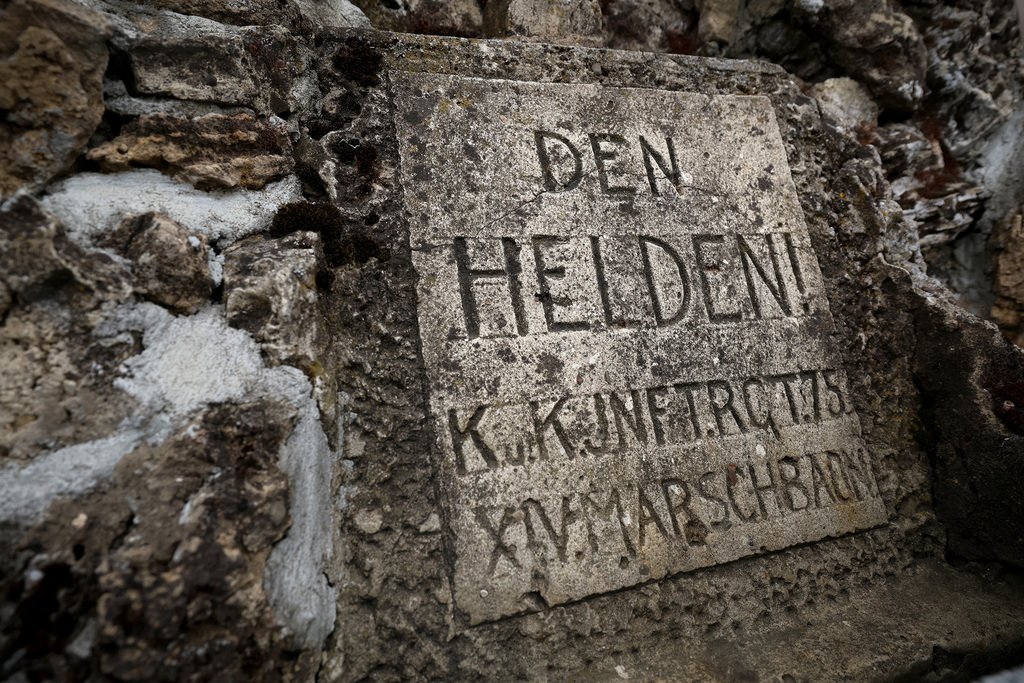 DEN
HELDEN!
K.u.K.JNFT.RGT.75.
XIV.MARSCHBAON!